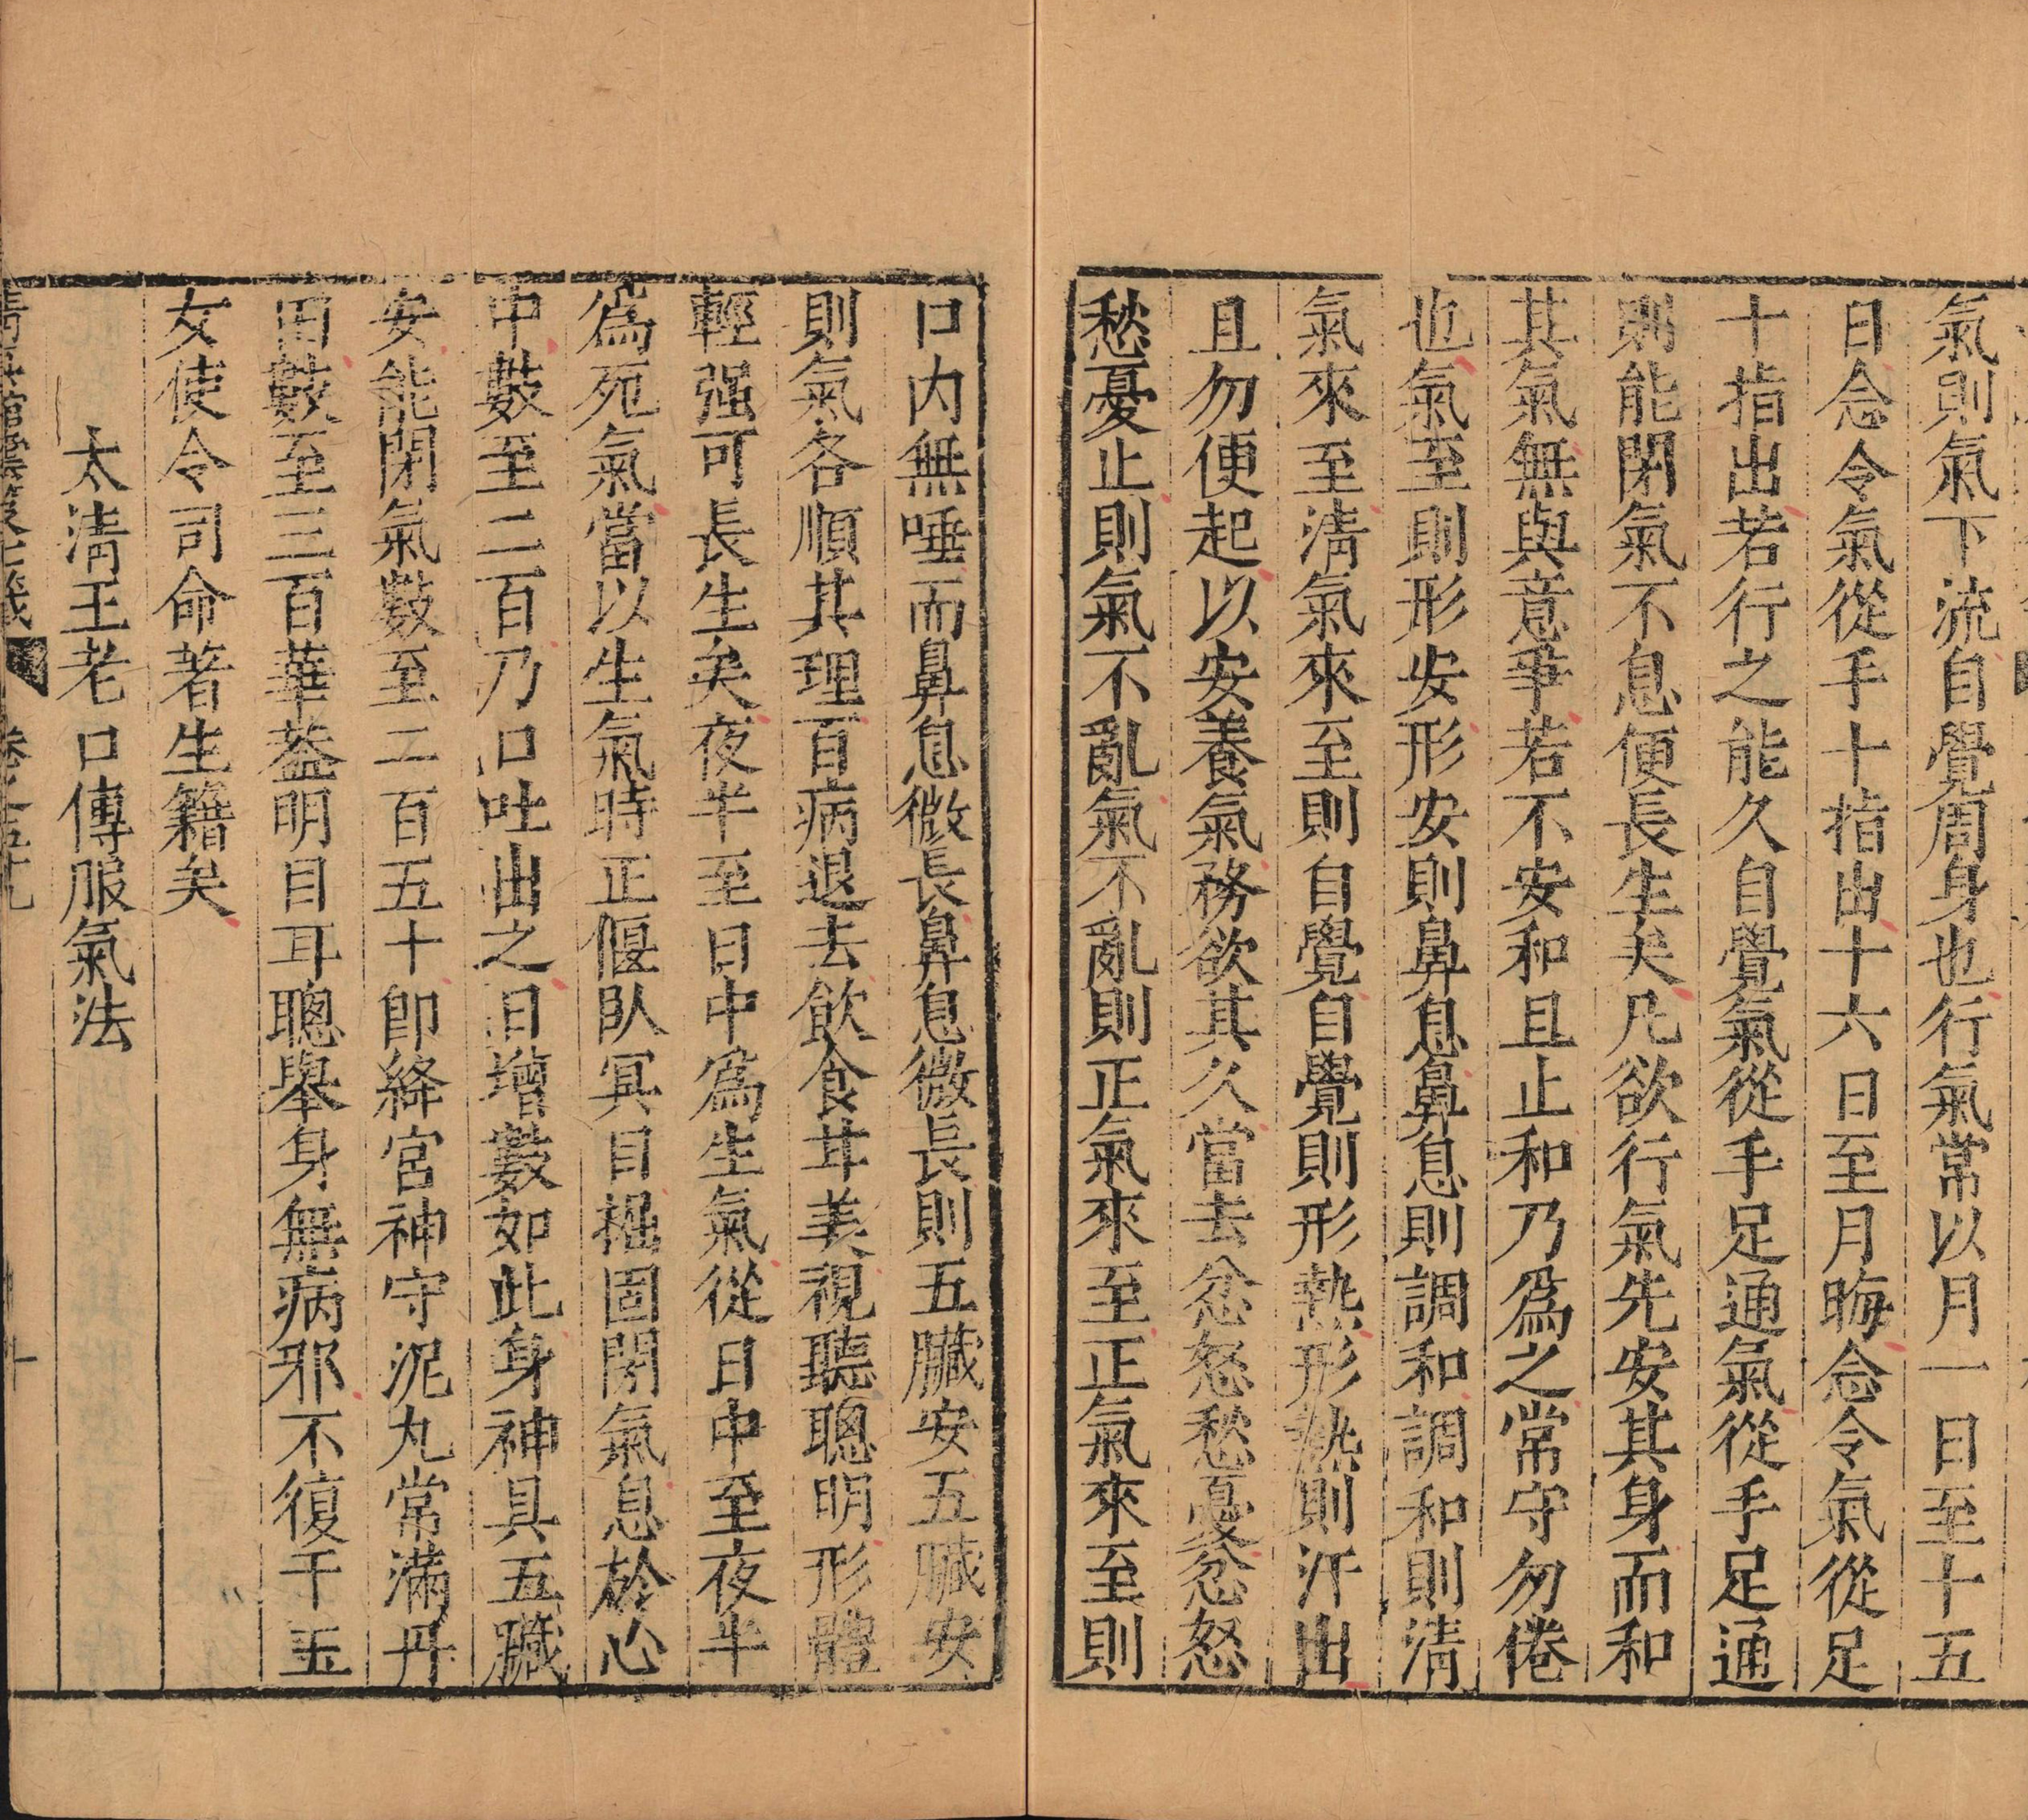 氣則氣下流自覺周身也行氣常以月一日至十五
日念令氣從手十指出十六日至月晦念令氣從足
十指出若行之能久自覺氣從手足通氣從手足通
則能閉氣不息便長生矣凡欲行氣先安其身而和
其氣無與意爭若不安和且止和乃爲之常守勿倦
也氣至則形安形安則鼻息鼻息則調和調和則清
氣來至清氣來至則自覺自覺則形熱形熱則汗出
且勿便起以安養氣務欲其久當去忿怒愁憂忿怒
愁憂止則氣不亂氣不亂則正氣來至正氣來至則
口內無唾而鼻息微長鼻息微長則五臟安五臟安
則氣各順其理百病退去飲食甘美視聽聰明形體
輕强可長生矣夜半至日中爲生氣從日中至夜半
爲死氣當以生氣時正偃臥冥目握固閉氣息於心
中數至二百乃口吐出之日增數如此身神具五臟
安能閉氣數至二百五十即絳宮神守泥丸常滿丹
田數至三百華葢明目耳聰舉身無病邪不復干玉
女使令司命著生籍矣
太清王老口傳服氣法